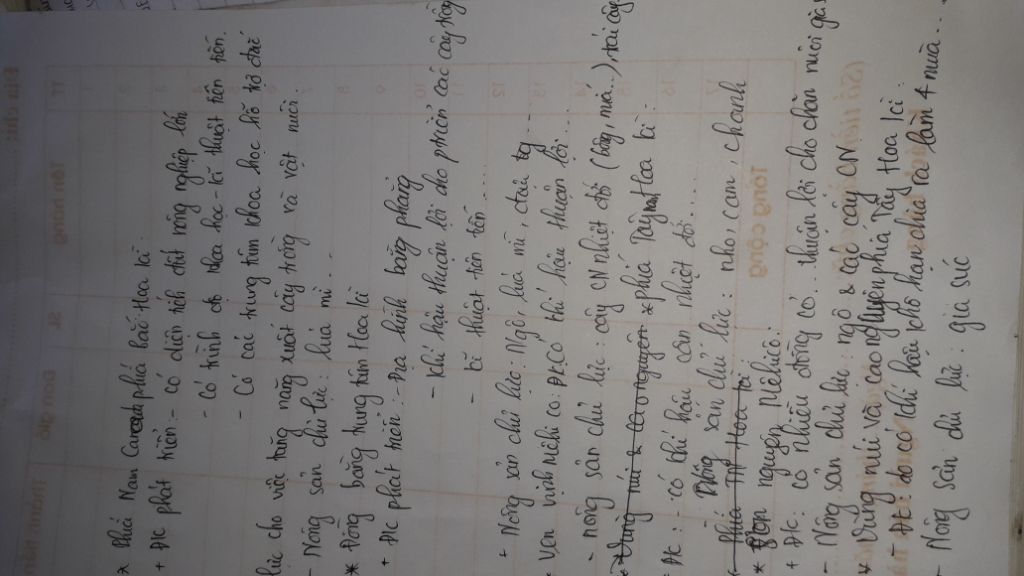 * Phía Nam Canađa, phía bắc Hoa Kì:
+ ĐK phát triển: - có diện tích đất nông nghiệp lớn
- Có trình độ khoa học - kĩ thuật tiên tiến.
- Có các trung tâm khoa học hỗ trợ đắc
lực cho việc tăng năng suất cây trồng và vật nuôi.
- Nông sản chủ lực: lúa mì...
* Đồng bằng trung tâm Hoa Kì
+ ĐK phát triển: - Địa hình bằng phẳng
- Khí hậu thuận lợi cho phtriển các cây trồng
- kĩ thuật tiên tiến...
+ Nông sản chủ lực: Ngô, lúa mì, đậu tg...
* Ven vịnh Mêhicô: ĐK có khí hậu thuận lợi...
- nông sản chủ lực: cây CN nhiệt đới (bông, mía...), trái cây
* phía Tây Nam Hoa Kì:
ĐK: - có khí hậu cận nhiệt đới....
Nông sản chủ lực: nho, cam, chanh
* nguyên Mêhicô:
+ ĐK: có nhiều đồng cỏ... thuận lợi cho chăn nuôi gia
- Nông sản chủ lực: ngô & các cây CN
* Vùng núi và cao nguyên phía Tây Hoa Kì:
- ĐK: do có khí hậu khô hạn chia ra làm 4 mùa...
- Nông sản chủ lực: gia súc
Tổng cộng
TT
Tên hàng
SL
Đơn giá
12
13
14
15
16
17